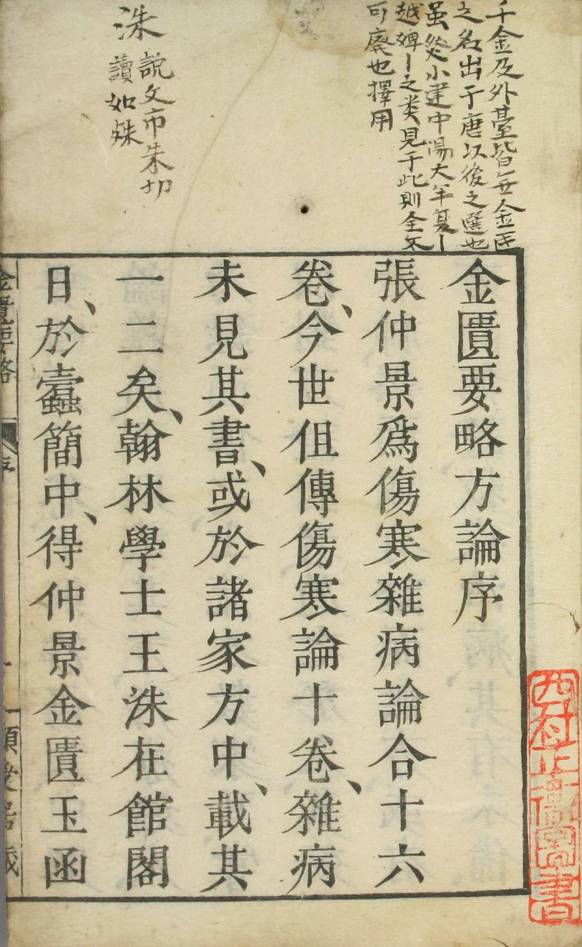 千金及外臺皆無金匱
之名出于唐以後之選也
虽然小建中湯大半夏
越婢之类見于此則全不
可廢也擇用
洙 説文市朱切
讀如殊
金匱要略方論序
張仲景爲傷寒雜病論合十六
卷、今世但傳傷寒論十卷、雜病
未見其書、或於諸家方中、載其
一二矣、翰林學士王洙在館閣
日、於蠹簡中、得仲景金匱玉函
金匱要略
序
圖書